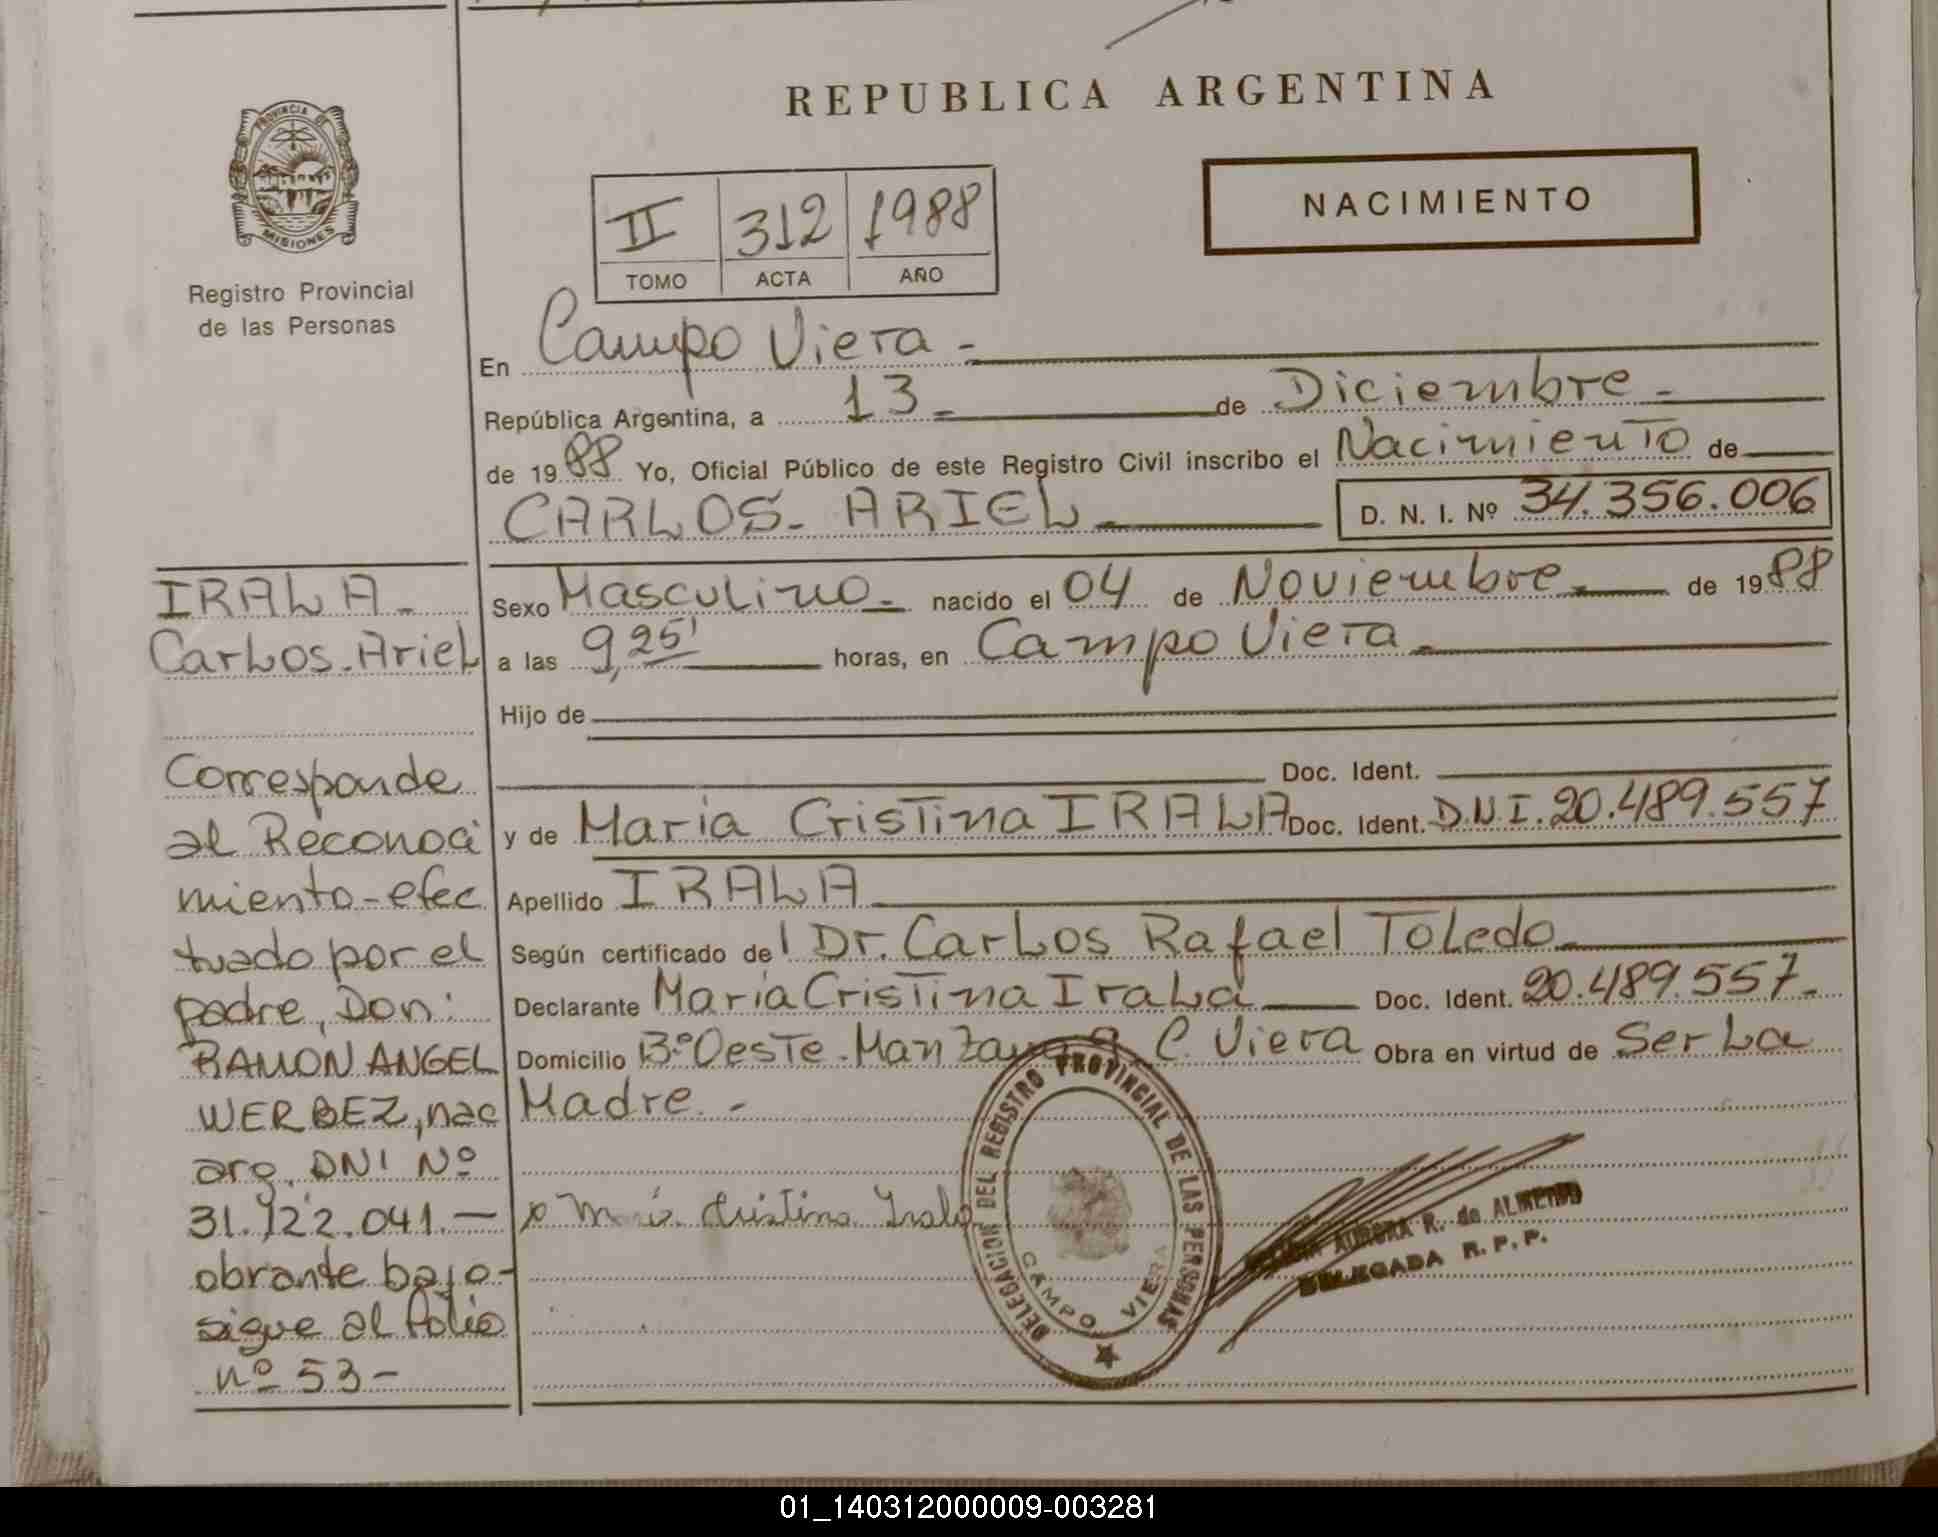 REPUBLICA ARGENTINA
PROVINCIA DE
MISIONES
Registro Provincial
de las Personas
NACIMIENTO
II 312 1988
TOMO ACTA AÑO
En Campo Viera -
República Argentina, a 13 - de Diciembre -
de 1988 Yo, Oficial Público de este Registro Civil inscribo el Nacimiento de
CARLOS - ARIEL - D. N. I. Nº 34.356.006
IRALA -
Carlos - Ariel
Sexo Masculino - nacido el 04 de Noviembre - de 1988
a las 9,25' horas, en Campo Viera -
Hijo de
Doc. Ident.
y de María Cristina IRALA Doc. Ident. D.N.I. 20.489.557
Apellido IRALA
Según certificado de l Dr. Carlos Rafael Toledo -
Declarante María Cristina Irala Doc. Ident. 20.489.557 -
Domicilio Bº Oeste - Manzana 9 C. Viera Obra en virtud de Ser La
Madre. -
Corresponde
al Reconoci
miento - efec
tuado por el
padre, Don:
RAMON ANGEL
WERBEZ, nac
arg. DNI Nº
31.122.041. —
obrante bajo -
sigue al folio
nº 53 -
Cristina Irala
DELEGACION DEL REGISTRO PROVINCIAL DE LAS PERSONAS
CAMPO VIERA
AURORA R. de ALMEIDO
DELEGADA R. P. P.
01_140312000009-003281